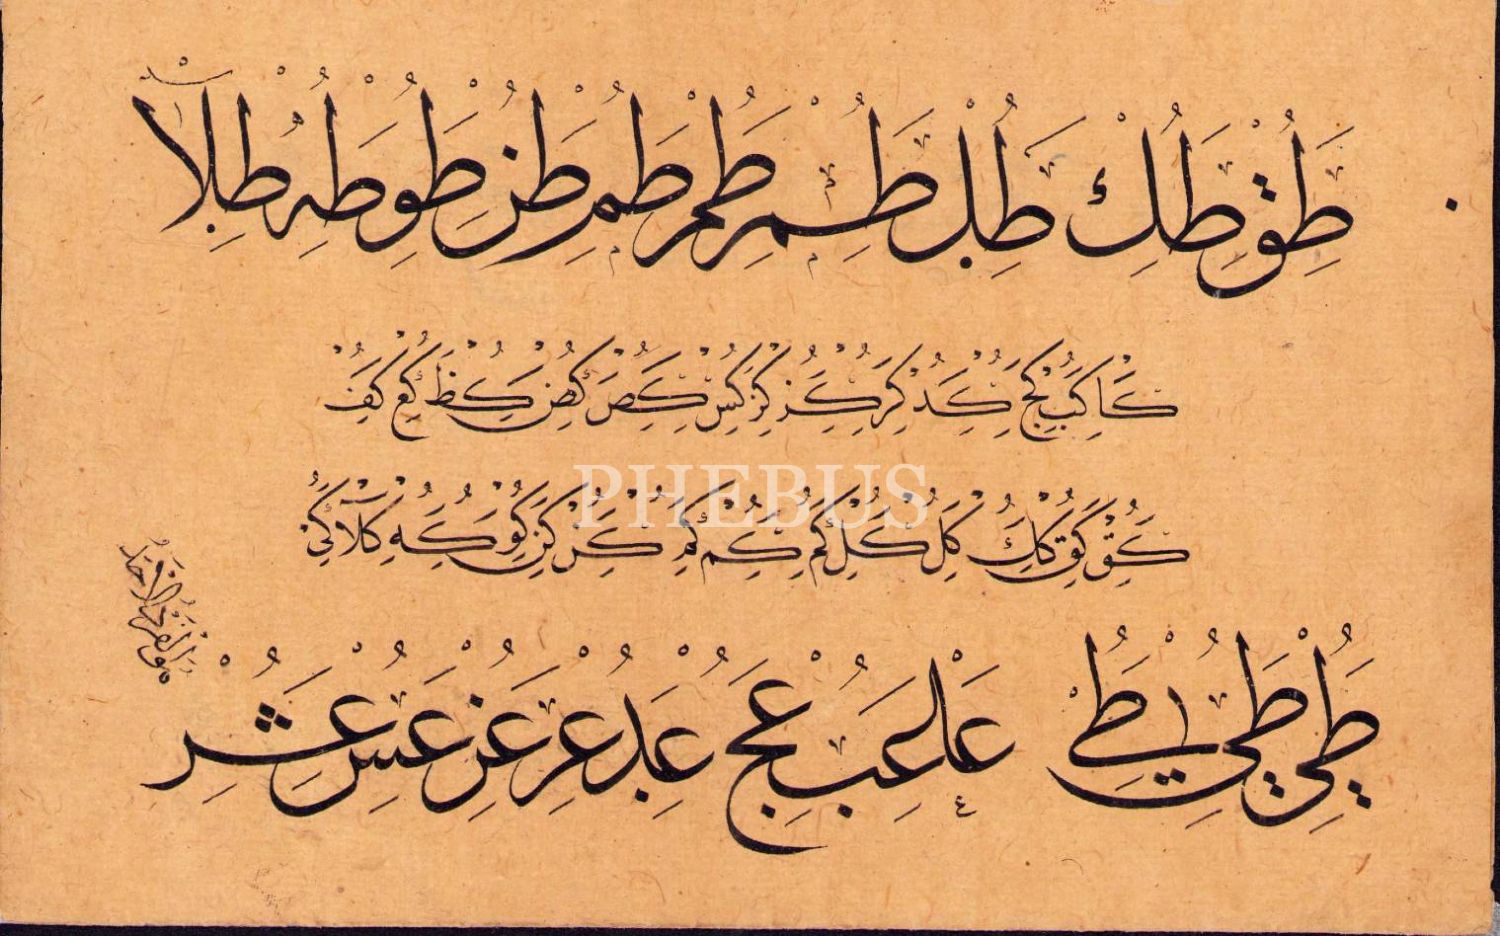 طق طك طل طم طم طم طن طو طه طلا
كا كب كج كد كر كز كز كس كص كض كظ كع كف
كق كق كك كل كل كم كم كم كن كن كو كه كلا كي
طي طي طي عا عب عج عد عر عز عس عش
PHEBUS